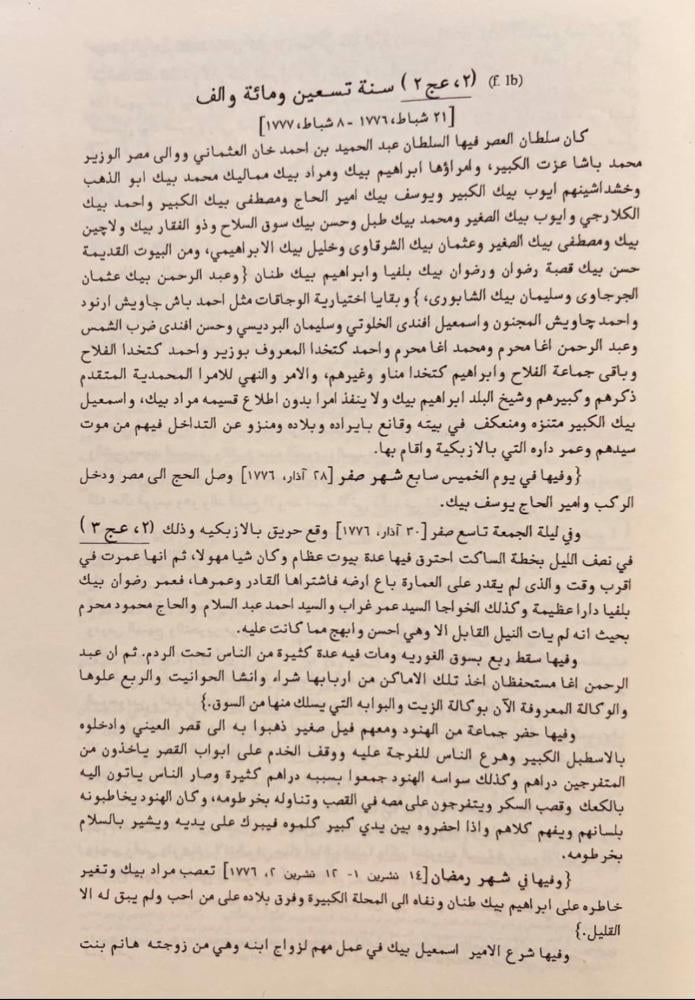 (f. 1b) (٢، عج ٢) سنة تسعين ومائة والف
[٢١ شباط، ١٧٧٦ - ٨ شباط، ١٧٧٧]
كان سلطان العصر فيها السلطان عبد الحميد بن احمد خان العثماني ووالى مصر الوزير
محمد باشا عزت الكبير، وامراؤها ابراهيم بيك ومراد بيك مماليك محمد بيك ابو الذهب
وخشداشينهم ايوب بيك الكبير ويوسف بيك امير الحاج ومصطفى بيك الكبير واحمد بيك
الكلارجي وايوب بيك الصغير ومحمد بيك طبل وحسن بيك سوق السلاح وذو الفقار بيك ولاچين
بيك ومصطفى بيك الصغير وعثمان بيك الشرقاوى وخليل بيك الابراهيمي، ومن البيوت القديمة
حسن بيك قصبة رضوان ورضوان بيك بلفيا وابراهيم بيك طنان {وعبد الرحمن بيك عثمان
الجرجاوى وسليمان بيك الشابورى،} وبقايا اختيارية الوجاقات مثل احمد باش جاويش ارنود
واحمد چاويش المجنون واسمعيل افندى الخلوتي وسليمان البرديسي وحسن افندى ضرب الشمس
وعبد الرحمن اغا محرم ومحمد اغا محرم واحمد كتخدا المعروف بوزير واحمد كتخدا الفلاح
وباقى جماعة الفلاح وابراهيم كتخدا مناو وغيرهم، والامر والنهي للامرا المحمدية المتقدم
ذكرهم وكبيرهم وشيخ البلد ابراهيم بيك ولا ينفذ امرا بدون اطلاع قسيمه مراد بيك، واسمعيل
بيك الكبير متنزه ومنعكف في بيته وقانع بايراده وبلاده ومنزو عن التداخل فيهم من موت
سيدهم وعمر داره التي بالازبكية واقام بها.
{وفيها في يوم الخميس سابع شهر صفر [٢٨ آذار، ١٧٧٦] وصل الحج الى مصر ودخل
الركب وامير الحاج يوسف بيك.
وفي ليلة الجمعة تاسع صفر [٣٠ آذار، ١٧٧٦] وقع حريق بالازبكيه وذلك (٢، عج ٣)
في نصف الليل بخطة الساكت احترق فيها عدة بيوت عظام وكان شيا مهولا، ثم انها عمرت في
اقرب وقت والذى لم يقدر على العمارة باع ارضه فاشتراها القادر وعمرها، فعمر رضوان بيك
بلفيا دارا عظيمة وكذلك الخواجا السيد عمر غراب والسيد احمد عبد السلام والحاج محمود محرم
بحيث انه لم يات النيل القابل الا وهي احسن وابهج مما كانت عليه.
وفيها سقط ربع بسوق الغوريه ومات فيه عدة كثيرة من الناس تحت الردم. ثم ان عبد
الرحمن اغا مستحفظان اخذ تلك الاماكن من اربابها شراء وانشا الحوانيت والربع علوها
والوكالة المعروفة الآن بوكالة الزيت والبوابه التي يسلك منها من السوق.}
وفيها حضر جماعة من الهنود ومعهم فيل صغير ذهبوا به الى قصر العيني وادخلوه
بالاسطبل الكبير وهرع الناس للفرجة عليه ووقف الخدم على ابواب القصر ياخذون من
المتفرجين دراهم وكذلك سواسه الهنود جمعوا بسببه دراهم كثيرة وصار الناس ياتون اليه
بالكعك وقصب السكر ويتفرجون على مصه في القصب وتناوله بخرطومه، وكان الهنود يخاطبونه
بلسانهم ويفهم كلامهم واذا احضروه بين يدي كبير كلموه فيبرك على يديه ويشير بالسلام
بخرطومه.
{وفيها في شهر رمضان [١٤ تشرين ١- ١٢ تشرين ٢، ١٧٧٦] تعصب مراد بيك وتغير
خاطره على ابراهيم بيك طنان ونفاه الى المحلة الكبيرة وفرق بلاده على من احب ولم يبق له الا
القليل.}
وفيها شرع الامير اسمعيل بيك في عمل مهم لزواج ابنه وهي من زوجته هانم بنت